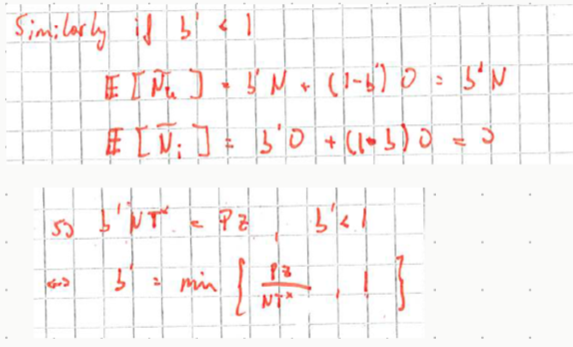 Similarly if b' < 1
𝔼 [Ñ_u] = b'N + (1-b') 0 = b'N
𝔼 [Ñ_i] = b'0 + (1-b) 0 = 0
so b'NT^x = PZ , b' < 1
⇔ b' = min { PZ / NT^x , 1 }